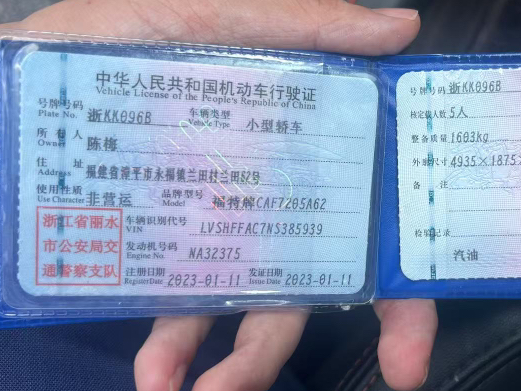 中华人民共和国机动车行驶证
Vehicle License of the People's Republic of China
号牌号码 Plate No. 浙KK096B 车辆类型 Vehicle Type 小型轿车
所有人 Owner 陈梅
住址 Address 福建省漳平市永福镇兰田村兰田82号
使用性质 Use Character 非营运 品牌型号 Model 福特牌CAF7205A62
浙江省丽水
市公安局交
通警察支队
车辆识别代号 VIN LVSHFFAC7NS385939
发动机号码 Engine No. NA32375
注册日期 Register Date 2023-01-11 发证日期 Issue Date 2023-01-11
号牌号码 浙KK096B
核定载人数 5人
整备质量 1603kg
外廓尺寸 4935×1875×
备注
检验记录
汽油